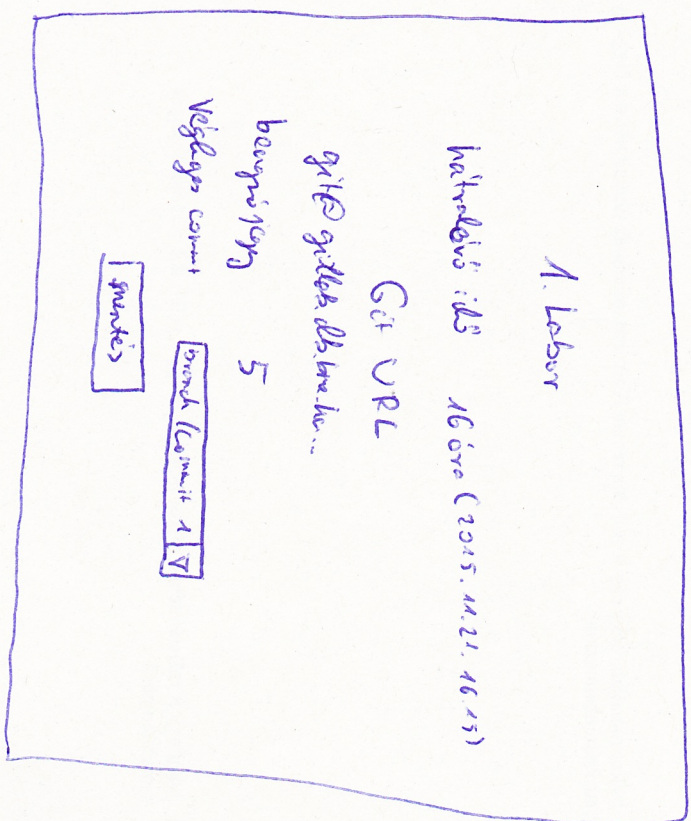 1. Labor
hátralévő idő 16 óra (2015.11.21. 16:15)
Git URL
git@gitlab.db.bme.hu...
beugró jegy 5
Végleges commit branch/commit 1 ▽
mentés